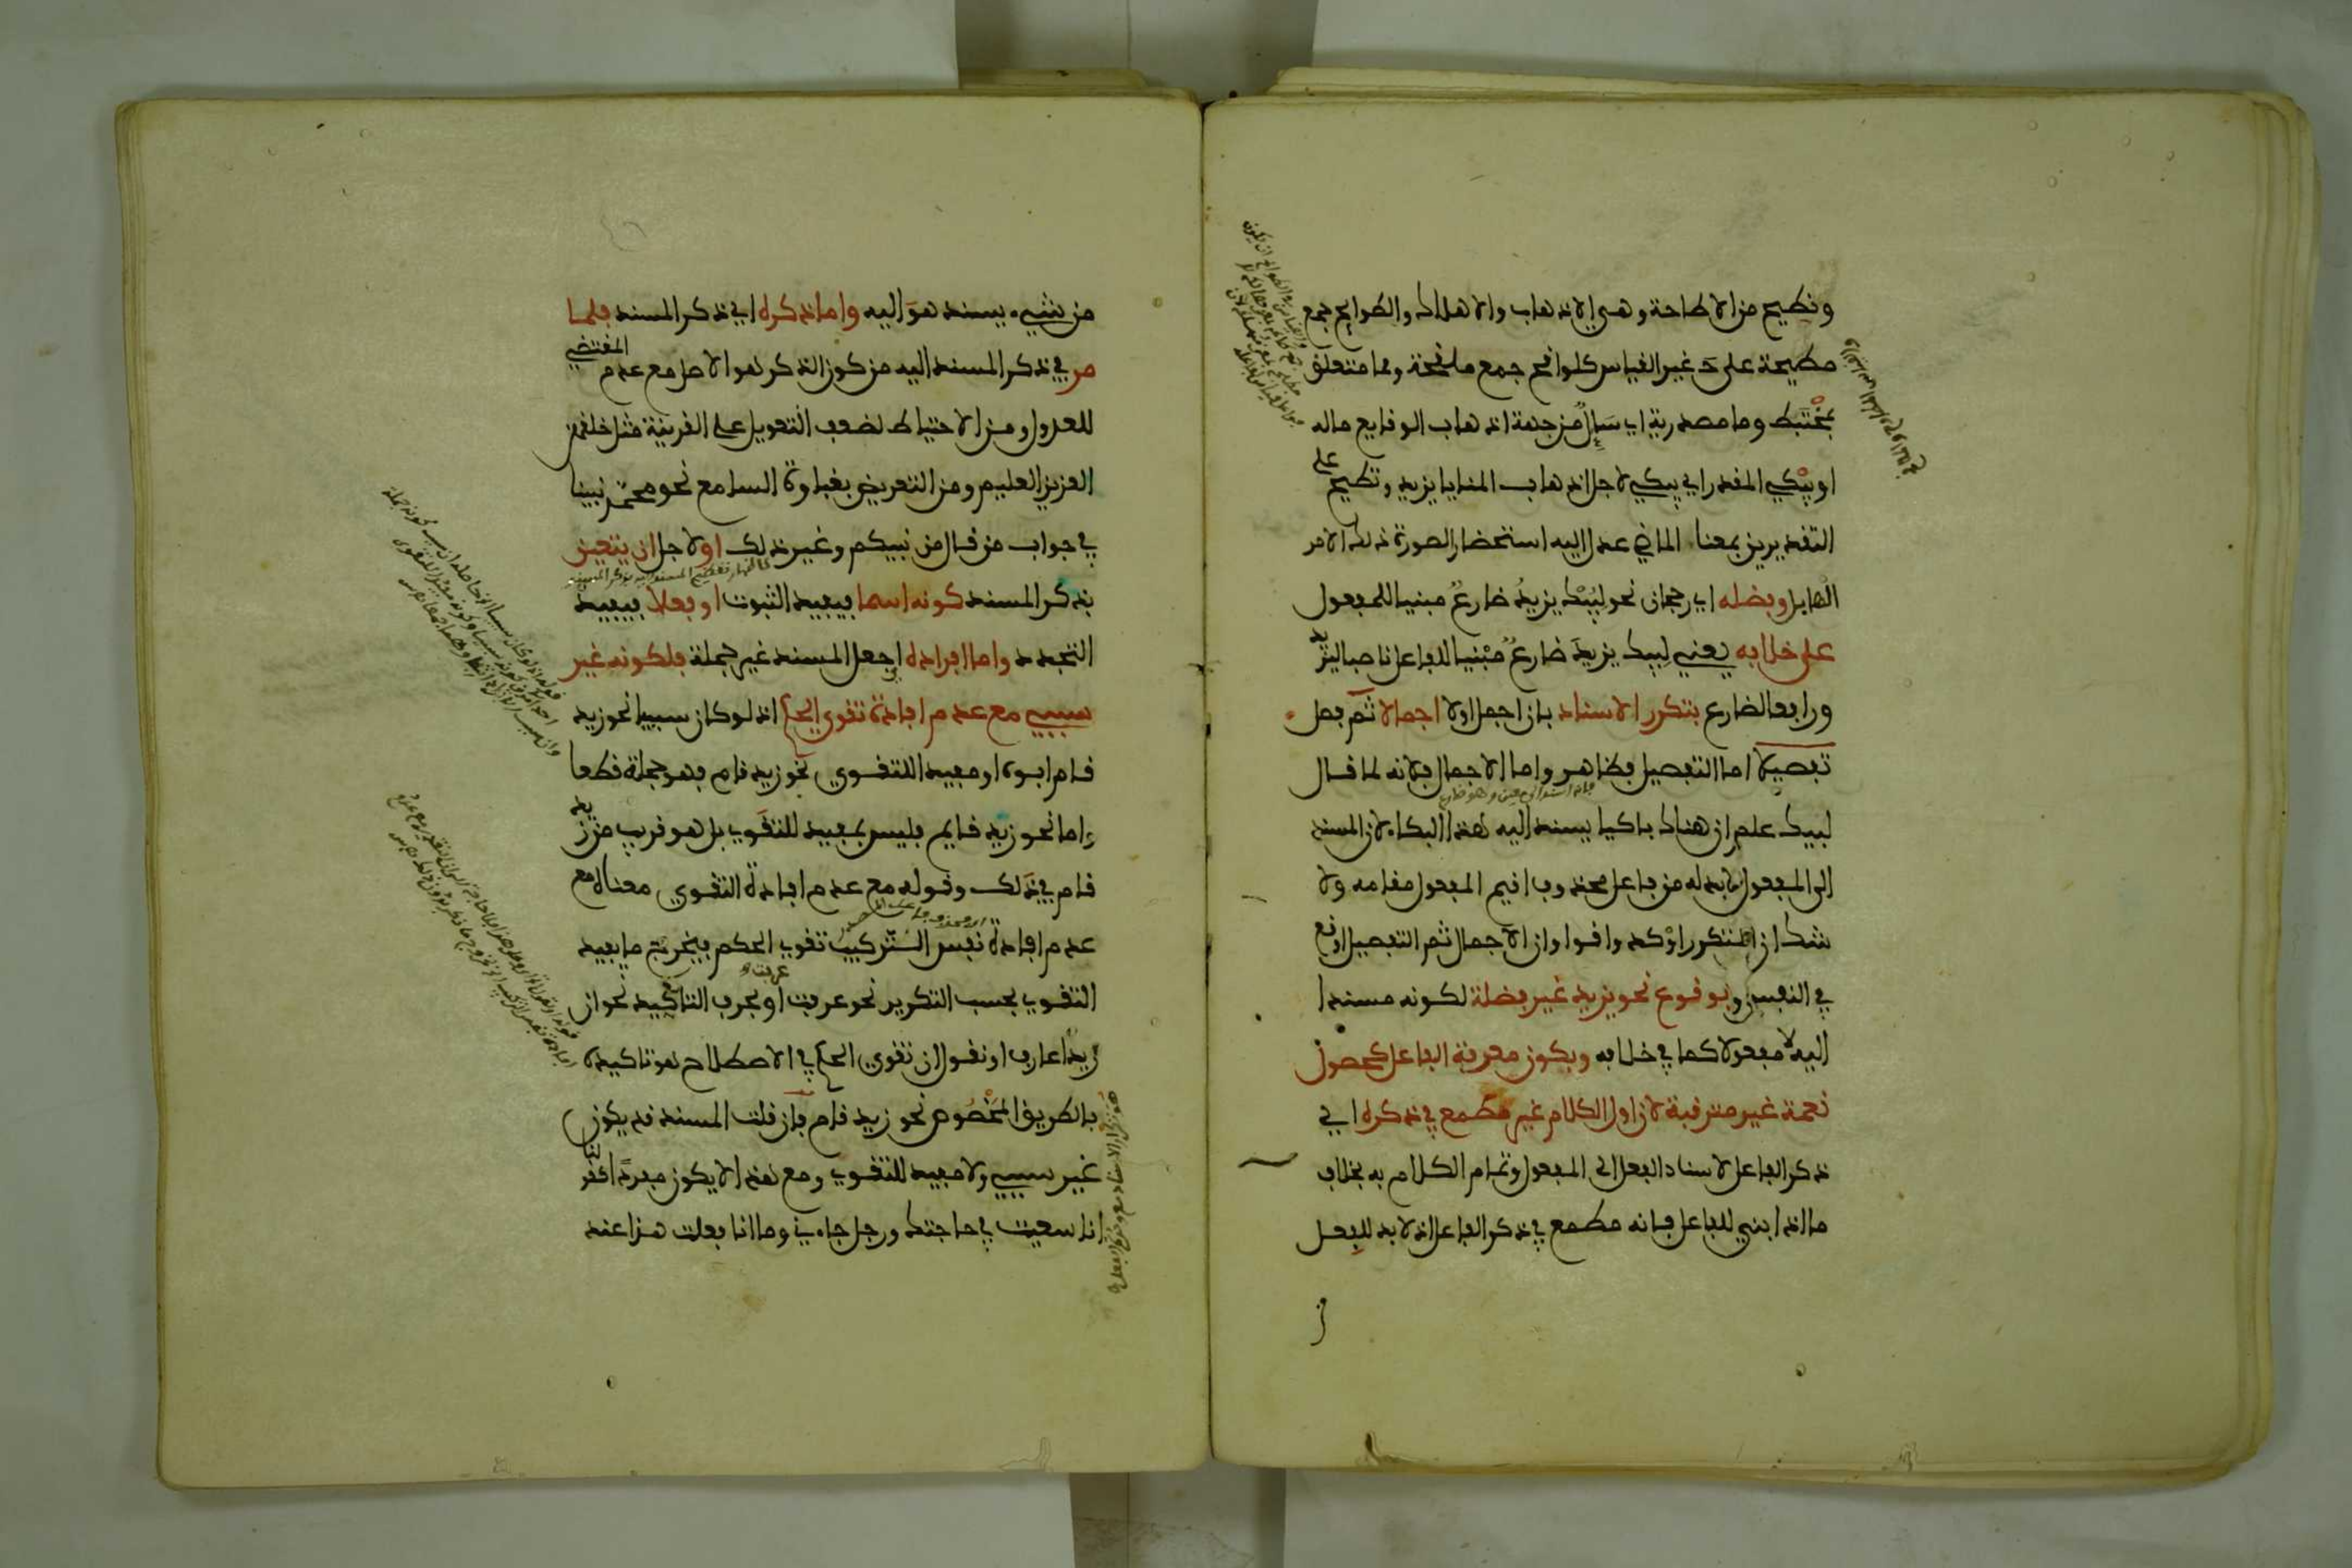 وتطيح من الاطاحة وهي الاذهاب والاهلاك والطوايح جمع
مطيحة على غير القياس كلواقح جمع ملقحة ومما متعلق
بمختبط وما مصدرية اي سايل من جهة اذهاب الوقايع ماله
او يبكي المقدر اي يبكي لاجل اذهاب المنايا يزيد وتطيح على
التقديرين بمعنى الماضي عدل اليه استحضار الصورة ذلك الامر
الهايل وفضله اي رجحان نحو ليبك يزيد ضارع مبنيا للمفعول
على خلافه يعني ليبك يزيد ضارع مبنيا للفاعل ناصبا ليزيد
ورافعا لضارع بتكرر الاسناد بان اجمل اولا اجمالا ثم فصل
تفصيلا اما التفصيل فظاهر واما الاجمال فلانه لما قال
ليبك علم ان هناك باكيا يسند اليه هذا البكاء لان المسند
الى المفعول لا بد له من فاعل محذوف اقيم المفعول مقامه ولا
شك ان المتكرر اوكد واقوا وان الاجمال ثم التفصيل اوقع
في النفس وبوقوع نحو يزيد غير فضلة لكونه مسندا
اليه لا مفعولا كما في خلافه وبكون معرفة الفاعل كحصول
نعمة غير مترقبة لان اول الكلام غير مطمع في ذكره اي
ذكر الفاعل لاسناد الفعل الى المفعول وتمام الكلام به بخلاف
ما اذا بني للفاعل فانه مطمع في ذكر الفاعل اذ لا بد للفعل
من
من شيء يسند هو اليه واما ذكره اي ذكر المسند فلما
مر في ذكر المسند اليه من كون الذكر هو الاصل مع عدم المقتضي
للعدول ومن الاحتياط لضعف التعويل على القرينة مثل خلقهن
العزيز العليم ومن التعريض بغباوة السامع نحو محمد نبينا
في جواب من قال من نبيكم وغير ذلك او لاجل ان يتعين
بذكر المسند كونه اسما فيفيد الثبوت او فعلا فيفيد
التجدد واما افراده اي جعل المسند غير جملة فلكونه غير
سببي مع عدم افادة تقوي الحكم اذ لو كان سببيا نحو زيد
قام ابوه او مفيدا للتقوي نحو زيد قام فهو جملة قطعا
واما نحو زيد قايم فليس بمفيد للتقوي بل هو قريب من زيد
قام في ذلك وقوله مع عدم افادة التقوي معناه مع
عدم افادة نفس التركيب تقوي الحكم فيخرج ما يفيد
التقوي بحسب التكرير نحو عرفت عرفت او بحرف التاكيد نحو ان
زيدا عارف او نقول ان تقوي الحكم في الاصطلاح هو تاكيده
بالطريق المخصوص نحو زيد قام فان قلت المسند قد يكون
غير سببي ولا مفيد للتقوي ومع هذا لا يكون مفردا كقولنا
انا سعيت في حاجتك ورجل جاءني وما انا فعلت هذا عند